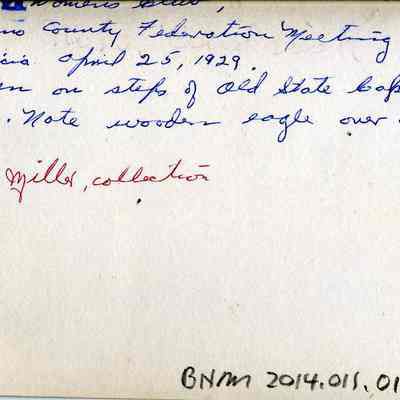 Womens Club,
no County Federation Meeting
cia April 25, 1929.
en on steps of Old State Cap
. Note wooden eagle over
Miller, collection
BNAM 2014.011.01